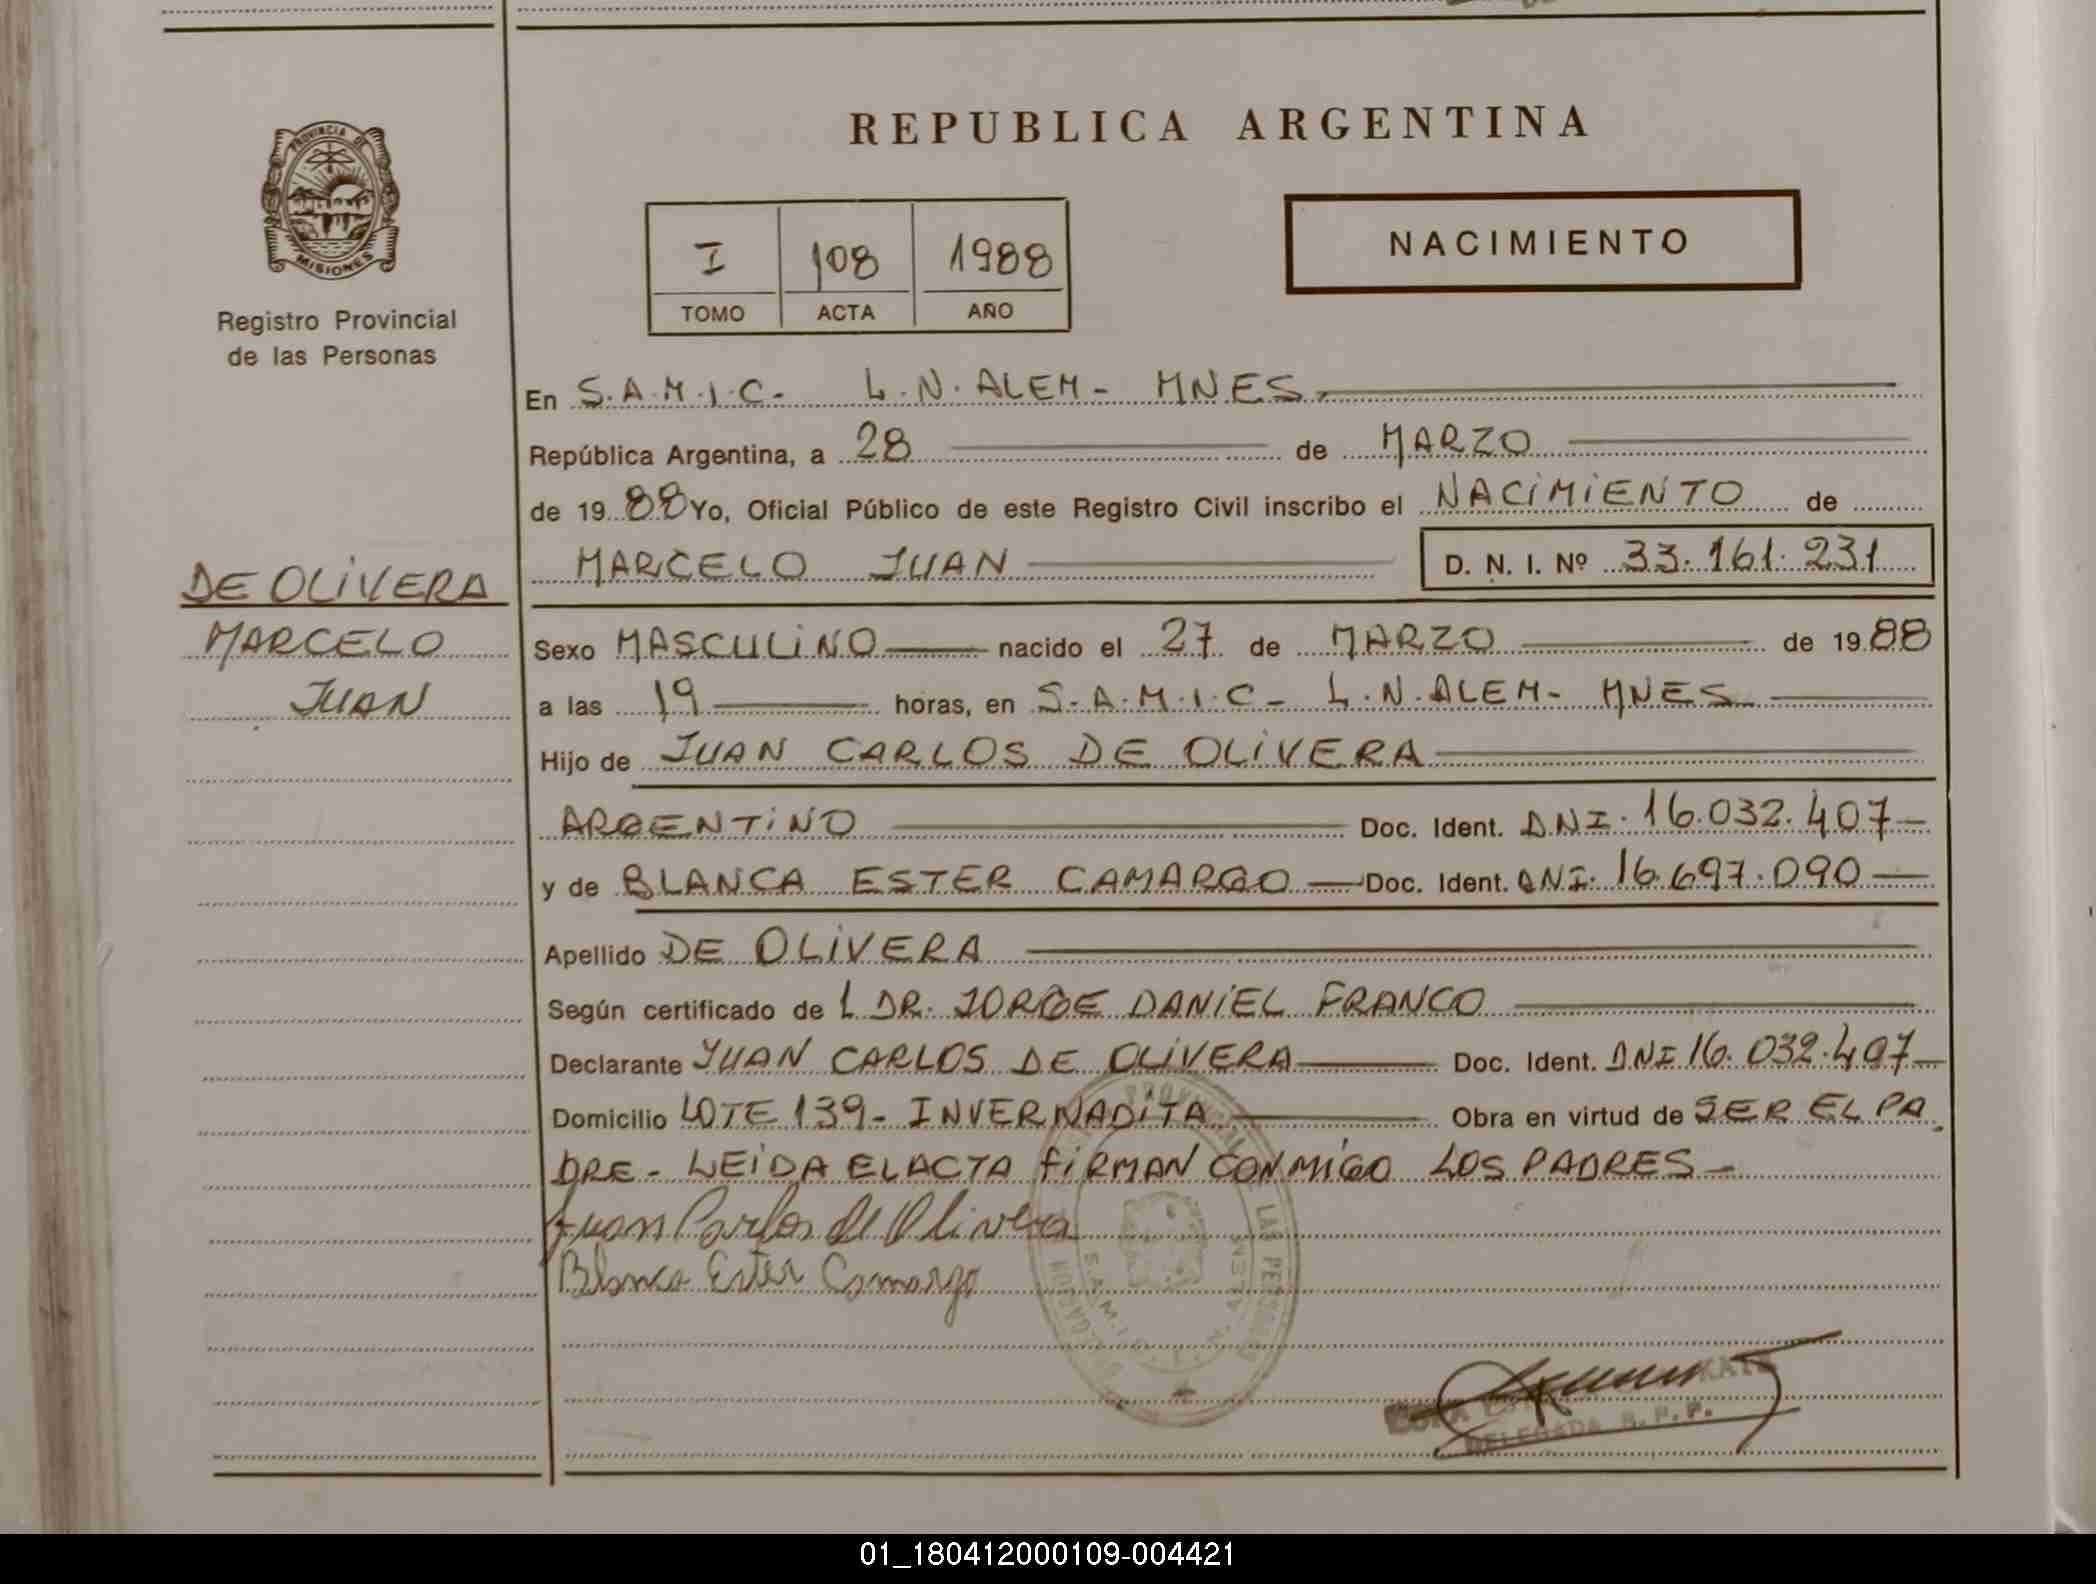 PROVINCIA DE
MISIONES
Registro Provincial
de las Personas
DE OLIVERA
MARCELO
JUAN
REPUBLICA ARGENTINA
I 108 1988
TOMO ACTA AÑO
NACIMIENTO
En S.A.M.I.C. L.N.ALEM- MNES
República Argentina, a 28 de MARZO
de 1988 Yo, Oficial Público de este Registro Civil inscribo el NACIMIENTO de
MARCELO JUAN D. N. I. Nº 33.161.231
Sexo MASCULINO nacido el 27 de MARZO de 1988
a las 19 horas, en S.A.M.I.C- L.N.ALEM- MNES
Hijo de JUAN CARLOS DE OLIVERA
ARGENTINO Doc. Ident. DNI.16.032.407-
y de BLANCA ESTER CAMARGO Doc. Ident. DNI.16.697.090
Apellido DE OLIVERA
Según certificado de L DR. JORGE DANIEL FRANCO
Declarante JUAN CARLOS DE OLIVERA Doc. Ident. DNI 16.032.407-
Domicilio LOTE 139- INVERNADITA Obra en virtud de SER EL PA
DRE- LEIDA EL ACTA FIRMAN CONMIGO LOS PADRES-
Juan Carlos de Olivera
Blanca Ester Camargo
PROVINCIAL DE LAS PERSONAS
S.A.M.I.C. L.N. ALEM
DELEGADA R.P.P.
01_180412000109-004421